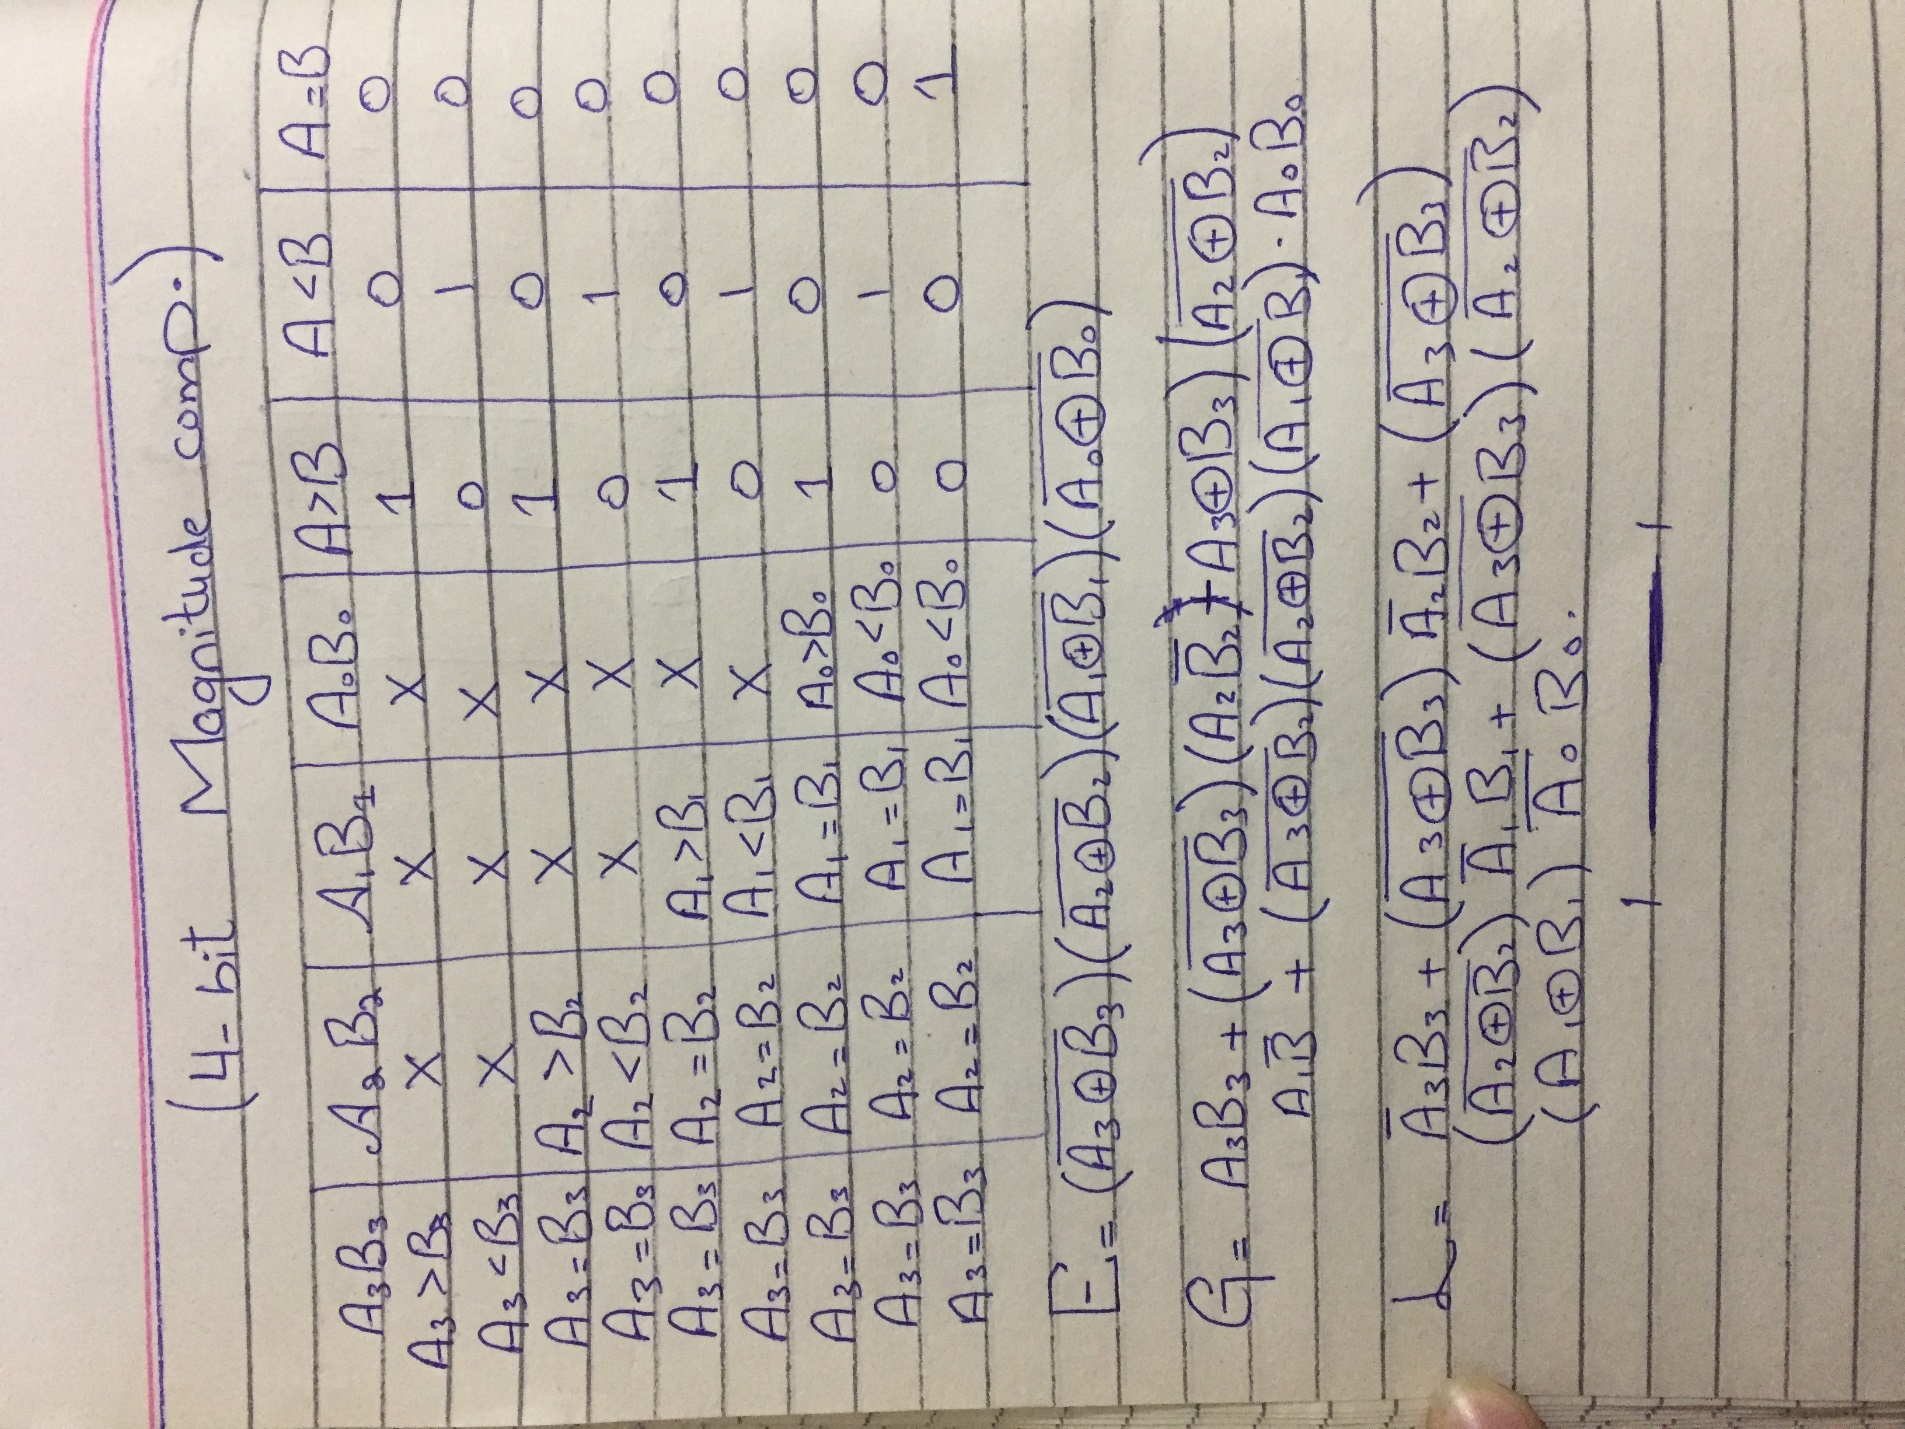 (4-bit Magnitude comp.)
A₃B₃ A₂B₂ A₁B₁ A₀B₀ A>B A<B A=B
A₃>B₃ X X X 1 0 0
A₃<B₃ X X X 0 1 0
A₃=B₃ A₂>B₂ X X 1 0 0
A₃=B₃ A₂<B₂ X X 0 1 0
A₃=B₃ A₂=B₂ A₁>B₁ X 1 0 0
A₃=B₃ A₂=B₂ A₁<B₁ X 0 1 0
A₃=B₃ A₂=B₂ A₁=B₁ A₀>B₀ 1 0 0
A₃=B₃ A₂=B₂ A₁=B₁ A₀<B₀ 0 1 0
A₃=B₃ A₂=B₂ A₁=B₁ A₀<B₀ 0 0 1
E = (A̅₃⊕B̅₃)(A̅₂⊕B̅₂)(A̅₁⊕B̅₁)(A̅₀⊕B̅₀)
G = A₃B₃ + (A̅₃⊕B̅₃)(A₂B̅₂) + A₃⊕B₃)(A̅₂⊕B̅₂)
A₁B̅ + (A̅₃⊕B̅₂)(A̅₂⊕B̅₂)(A̅₁⊕B̅₁)·A₀B₀
L = A̅₃B₃ + (A̅₃⊕B̅₃) A̅₂B₂ + (A̅₃⊕B̅₃)
(A̅₂⊕B̅₂) A̅₁B₁ + (A̅₃⊕B̅₃)(A̅₂⊕B̅₂)
(A₁⊕B₁) A̅₀B₀.